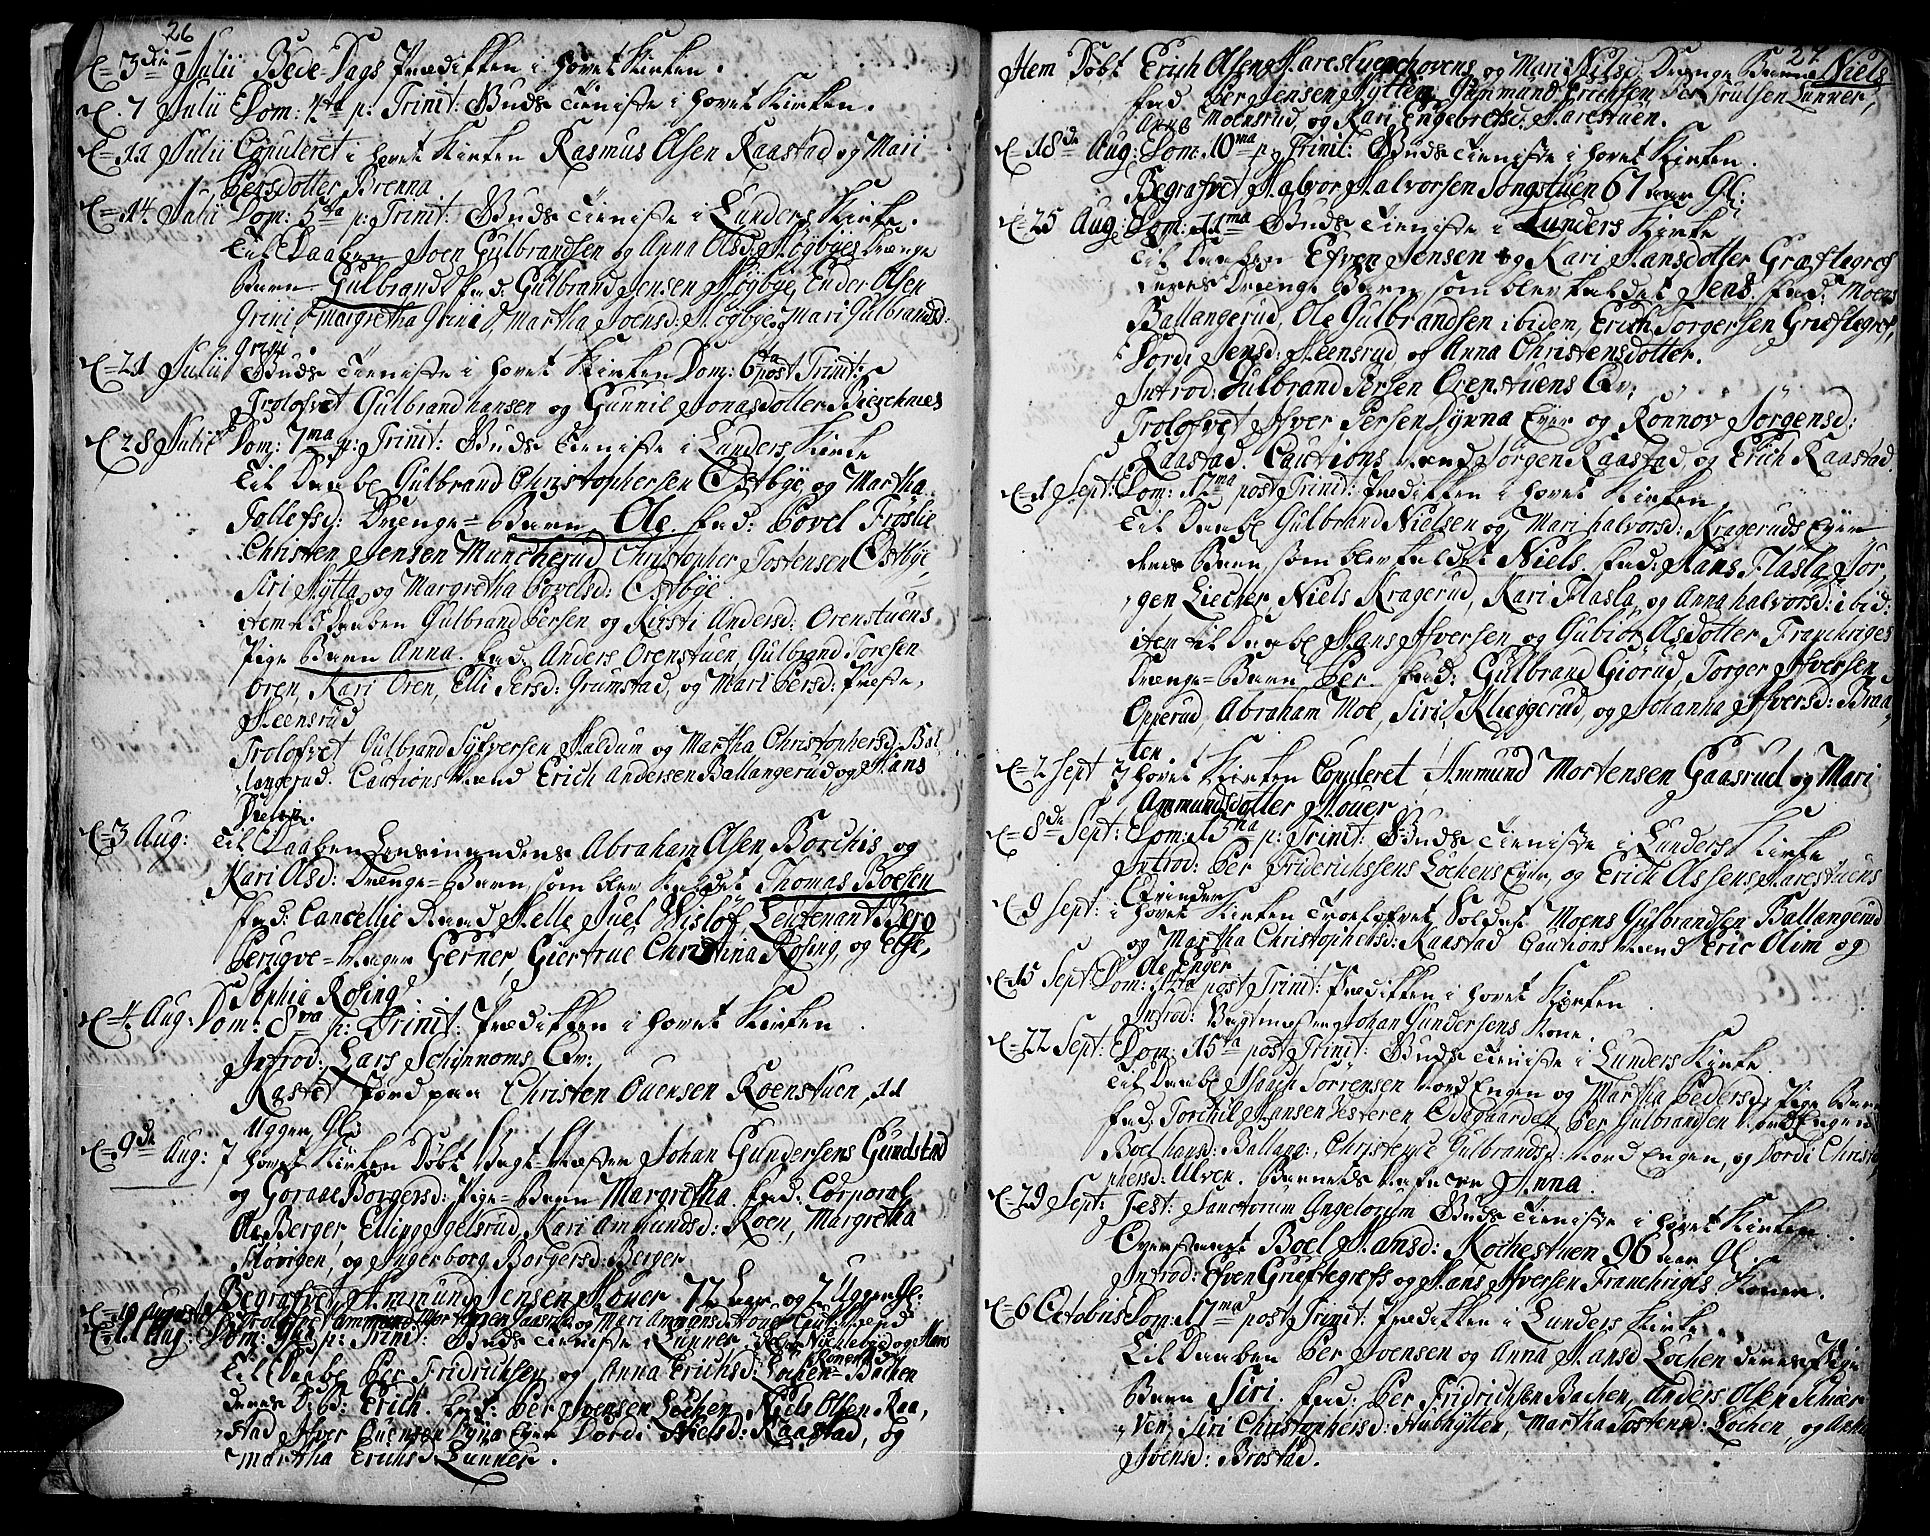 26
d. 3die Julii Bede-Dags Prædiken i hovet Kirken.
d. 7 Julii Dom: 4ta p. Trinit: Guds Tieniste i hovet Kirken.
d. 11 Julii Copuleret i hovet Kirken Rasmus Olsen Raastad og Mari
Persdotter Brenna
d. 14 Julii Dom: 5ta p: Trinit: Guds Tieniste i Lunders Kirke.
Til Daaben Joen Gulbrandsen og Anna Olsd: Høgbyes Drænge
Barn Gulbrand fad: Gulbrand Jensen Høgbye, Ender Olsen
Grini Margretha Grina, Martha Joensd: Høgbye, Mari Gulbrandsd:
Grini.
d. 21 Julii Guds Tieniste i hovet Kirken Dom: 6ta post Trinit:
Trolofvet Gulbrand hansen og Gunnil Jonasdotter
d. 28 Julii Dom: 7ma p: Trinit: Guds Tieniste i Lunders Kirke
Til Daabe Gulbrand Christophersen Østbye og Martha
Tollefsd: Drænge-Barn Ole. fad: Povel Frøslie
Christen Jensen Muncherud, Christopher Tostensen Østbye,
Siri Hytta, og Margretha Povelsd: Østbye.
item til Daaben Gulbrand Persen og Kirsti Andersd: Orenstuens
Pige Barn Anna. fad: Anders Orenstuen, Gulbrand Toresen
Oren, Kari Oren, Elli Persd: Grimstad, og Mari Persd: Præste,
Heensrud
Trolofvet Gulbrand Syfversen Haldum og Martha Christophersd: Bal
langerud. Cautions Mænd Erich Andersen Ballangerud, og Hans
d. 3 Aug: Til Daaben Lensmandens Abraham Olsen Borchis og
Kari Olsd: Drænge-Barn, som blev kaldet Thomas Boesen
fad: Cancellie Raad Helle Juel Wisløf, Leutenant Berg
Perugve-mager Gerner, Giertrue Christina Rosing, og Else,
Sophia Rosing
d. 4 Aug: Dom: 8va p: Trinit: Prædiken i hovet Kirken
Introd: Lars Schinnoms Qv:
Kastet Jord paa Christen Ouensen Koenstuen, 11
Ugger Gl:
d. 9de Aug: I hovet Kirken Døbt Vagt-Mester Johan Gundersens Gundstad
og Goraae Borgersd: Pige-Barn Margretha. fad: Corporal
Ole Berger, Elling Igelsrud, Kari Ammundsd: Koen, Margretha
Støvigen, og Ingerborg Borgersd: Berger
Begrafvet Ammund Jensen Houer 72 Aar og 7 Ugger Gl:
d. 10 Augusti Trolofvet Ammund Mortensen Gaasrud og Mari Ammundsd: Houer Caut: Mænd
d. 11 Aug: Dom: 9na p: Trinit: Guds Tieniste i Lunner
Til Daabe Per Fridrichsen og Anna Erichsd: Lochen-Bachen
deres D: B: Erich. Test: Per Ivensen Lochen, Niels Olsen Raa,
stad Ifver Ouensen Dyna Eyer Dordi Nielsd: Raastad, og
Martha Erichsd: Lunner.
27.
Item Døbt Erich Olsen Harestuenhovens og Mari Nilsd: Drænge Barn Niels
fad: Per Jensen Hytten, Gummund Erichsen, Per Trulsen Lunner,
Anna Moensrud, og Kari Engebretsd: Harestuen.
d. 18de Aug: Dom: 10ma p: Trinit: Guds Tieniste i hovet Kirken.
Begrafvet Halvor Halvorsen Songstuen 67 aar Gl:
d. 25 Aug: Dom: 11ma Guds Tieniste i Lunders Kirke
Til Daaben Efven Jensen og Kari Hansdotter Græftegref
deres Drænge Barn som blev kaldet Jens. fad: Moens
Ballangerud, Ole Gulbrandsen ibidem, Erich Torgersen Græftegref,
Dordi Jensd: Heensrud og Anna Christensdotter.
Introd: Gulbrand Persen Orenstuens Qv:
Trolofvet Ifver Persen Dynna Eyer og Rønnov Jørgensd:
Raastad. Cautions Mænd Jørgen Raastad, og Erich Raastad.
d. 1 Sept: Dom: 12ma post Trinit: Prædiken i hovet Kirken
Til Daabe Gulbrand Nielsen og Mari halvorsd: Kragerudseyer
deres Barn, som blev kaldet Niels. fad: Hans Flasla, Jør,
gen Liecher, Niels Kragerud, Kari Flasla, og Anna halvorsd: ibid:
item til Daabe Hans Ifversen og Gubiør Olsdotter Franchriges
Drænge-Barn Per. fad: Gulbrand Giørud, Torger Ifversen
Opperud, Abraham Moe, Siri Klæggerud, og Johanna Ifversd: Braa,
ten
d. 2 Sept I hovet Kirken Copuleret Ammund Mortensen Gaasrud og Mari
Ammundsdotter Houer.
d. 8de Sept: Dom: 13tia p: Trinit: Guds Tieniste i Lunders Kirke
Introd: Per Friderichssens Lochens Eyer, og Erich Olssens Harestuens
Qvinder
d. 9 Sept: i hovet Kirken Trolofvet Soldat Moens Gulbrandsen Ballangerud
og Martha Christophersd: Raastad Cautions Mænd Eric Olim og
Ole Enger
d. 15 Sept Dom: 14ta post Trinit: Prædiken i hovet Kirken
Introd: Vagtmester Johan Gundersens Kone.
d. 22 Sept: Dom: 15ta post Trinit: Guds Tieniste i Lunders Kirke.
Til Daabe Isaach Sørrensen Nord Engen og Martha Pedersd: Pige Barn
fad: Torchil Hansen Vesteren Odegaarden, Per Gulbrandsen Nord Engen
Boel hansd: Ballang:, Christence Gulbrandsd: Nord Engen, og Dordi Christo
phersd: Ulven. Barnets Nafn er Anna.
d. 29 Sept: Fest: Sanctorum Angelorum Guds Tieniste i hovet Kirken.
Boel Hansd: Kochestuen 96 aar Gl:
Introd: Efven Græftegrefs og Hans Ifversen Franchrigs Koner.
d. 6 Octobris Dom: 17ma post Trinit: Prædiken i Lunders Kirke
Til Daaben Per Ivensen og Anna Hansd: Lochen deres Pige
Barn Siri. fad: Per Fridrichsen Bachen, Anders Olsen Schiær
ven, Siri Christophersd: Hubhytten, Martha Tostensd: Lochen, og Anna
Ivensd: Brostad.